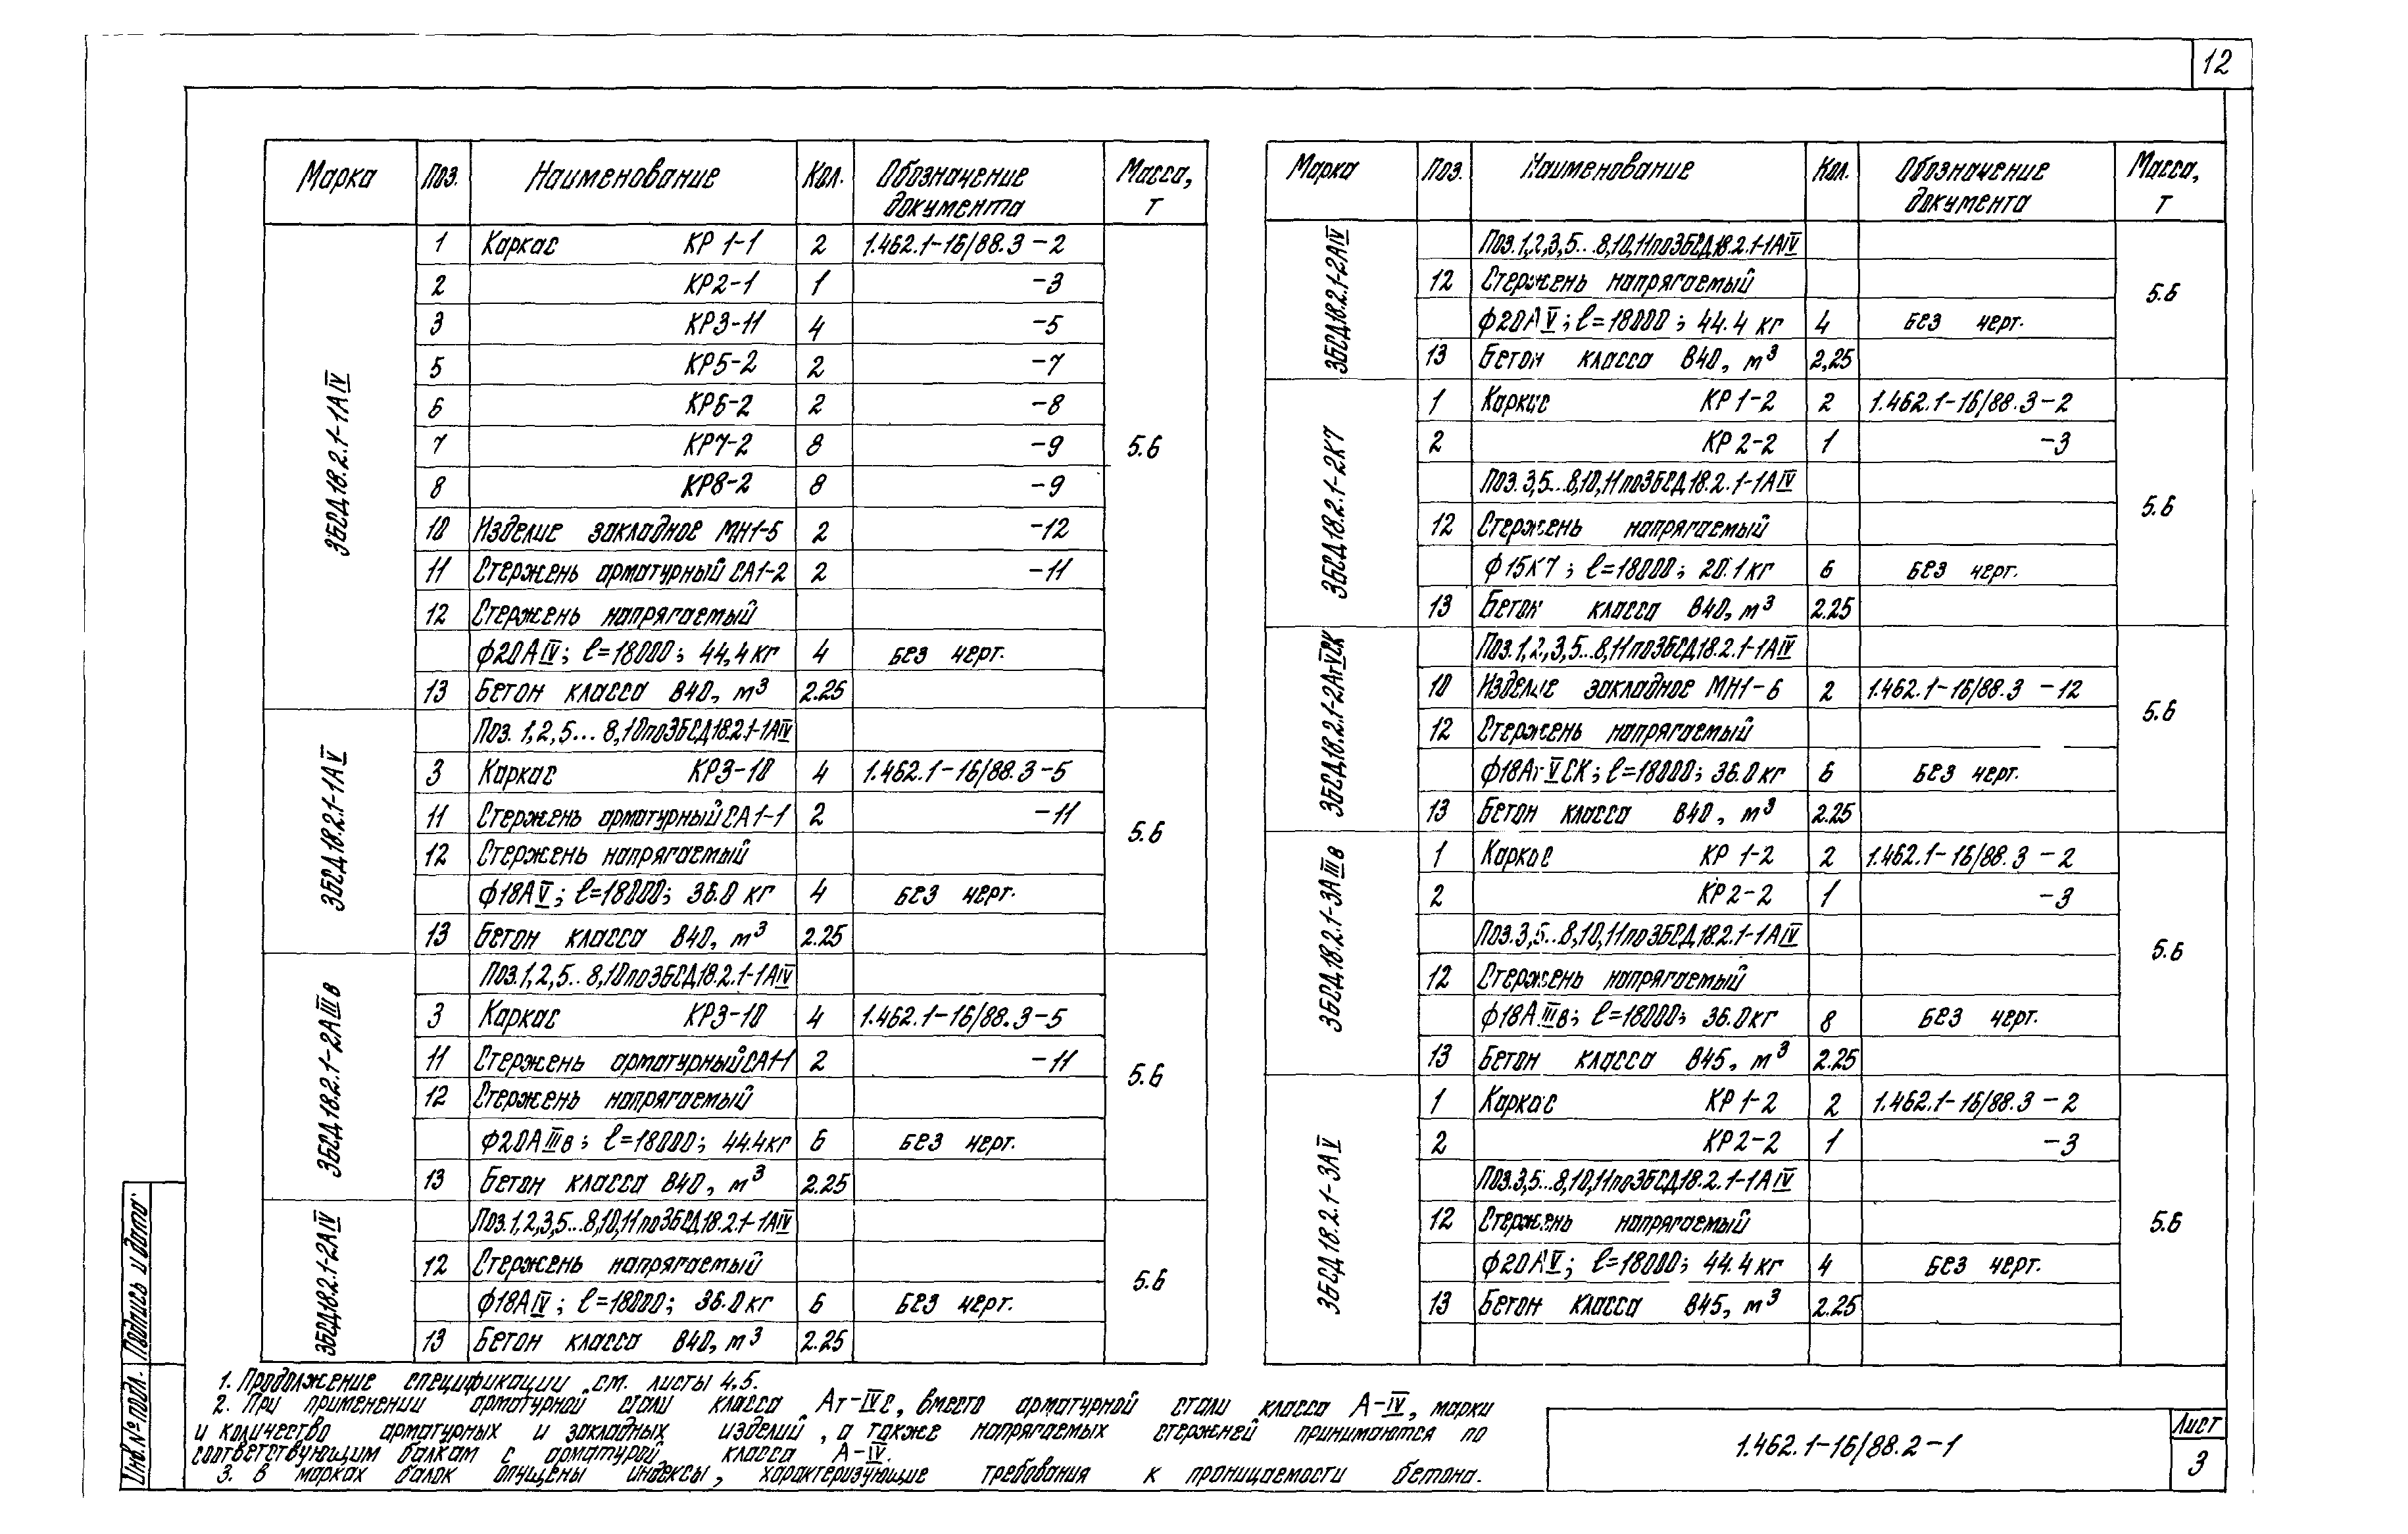 12
Марка Поз. Наименование Кол. Обозначение документа Масса, т
3БСД18.2.1-1АIV
1 Каркас КР1-1 2 1.462.1-16/88.3-2
2 КР2-1 1 -3
3 КР3-11 4 -5
5 КР5-2 2 -7
6 КР6-2 2 -8
7 КР7-2 8 -9
8 КР8-2 8 -9
10 Изделие закладное МН1-5 2 -12
11 Стержень арматурный СА1-2 2 -11
12 Стержень напрягаемый
ф20АIV; l=18000; 44,4кг 4 без черт.
13 Бетон класса В40, м³ 2.25
5.6
3БСД18.2.1-1АV
Поз. 1,2,5...8,10по3БСД18.2.1-1АIV
3 Каркас КР3-10 4 1.462.1-16/88.3-5
11 Стержень арматурный СА1-1 2 -11
12 Стержень напрягаемый
ф18АV; l=18000; 36.0 кг 4 без черт.
13 Бетон класса В40, м³ 2.25
5.6
3БСД18.2.1-2АIIIв
Поз.1,2,5..8,10по3БСД18.2.1-1АIV
3 Каркас КР3-10 4 1.462.1-16/88.3-5
11 Стержень арматурный СА1-1 2 -11
12 Стержень напрягаемый
ф20АIIIв; l=18000; 44.4кг 6 без черт.
13 Бетон класса В40, м³ 2.25
5.6
3БСД18.2.1-2АIV
Поз.1,2,3,5...8,10,11по3БСД18.2.1-1АIV
12 Стержень напрягаемый
ф18АIV; l=18000; 36.0кг 6 без черт.
13 Бетон класса В40, м³ 2.25
5.6
Марка Поз. Наименование Кол. Обозначение документа Масса, т
3БСД18.2.1-2АIV
Поз.1,2,3,5...8,10,11по3БСД18.2.1-1АIV
12 Стержень напрягаемый
ф20АV; l=18000; 44.4 кг 4 без черт.
13 Бетон класса В40, м³ 2,25
5.6
3БСД18.2.1-2К7
1 Каркас КР1-2 2 1.462.1-16/88.3-2
2 КР2-2 1 -3
Поз.3,5...8,10,11по3БСД18.2.1-1АIV
12 Стержень напрягаемый
ф15К7; l=18000; 20.1кг 6 без черт.
13 Бетон класса В40, м³ 2.25
5.6
3БСД18.2.1-2АтVСК
Поз.1,2,3,5...8,11по3БСД18.2.1-1АIV
10 Изделие закладное МН1-6 2 1.462.1-16/88.3-12
12 Стержень напрягаемый
ф18АтVСК; l=18000; 36.0кг 6 без черт.
13 Бетон класса В40, м³ 2.25
5.6
3БСД18.2.1-3АIIIв
1 Каркас КР1-2 2 1.462.1-16/88.3-2
2 КР2-2 1 -3
Поз.3,5...8,10,11по3БСД18.2.1-1АIV
12 Стержень напрягаемый
ф18АIIIв; l=18000; 36.0кг 8 без черт.
13 Бетон класса В45, м³ 2.25
5.6
3БСД18.2.1-3АV
1 Каркас КР1-2 2 1.462.1-16/88.3-2
2 КР2-2 1 -3
Поз.3,5...8,10,11по3БСД18.2.1-1АIV
12 Стержень напрягаемый
ф20АV; l=18000; 44.4кг 4 без черт.
13 Бетон класса В45, м³ 2.25
5.6
1. Продолжение спецификации см. листы 4,5.
2. При применении арматурной стали класса Ат-IVС, вместо арматурной стали класса А-IV, марки
и количество арматурных и закладных изделий, а также напрягаемых стержней принимаются по
соответствующим балкам с арматурой класса А-IV.
3. В марках балок опущены индексы, характеризующие требования к проницаемости бетона.
1.462.1-16/88.2-1
Лист
3
Инв.№подл. Подпись и дата